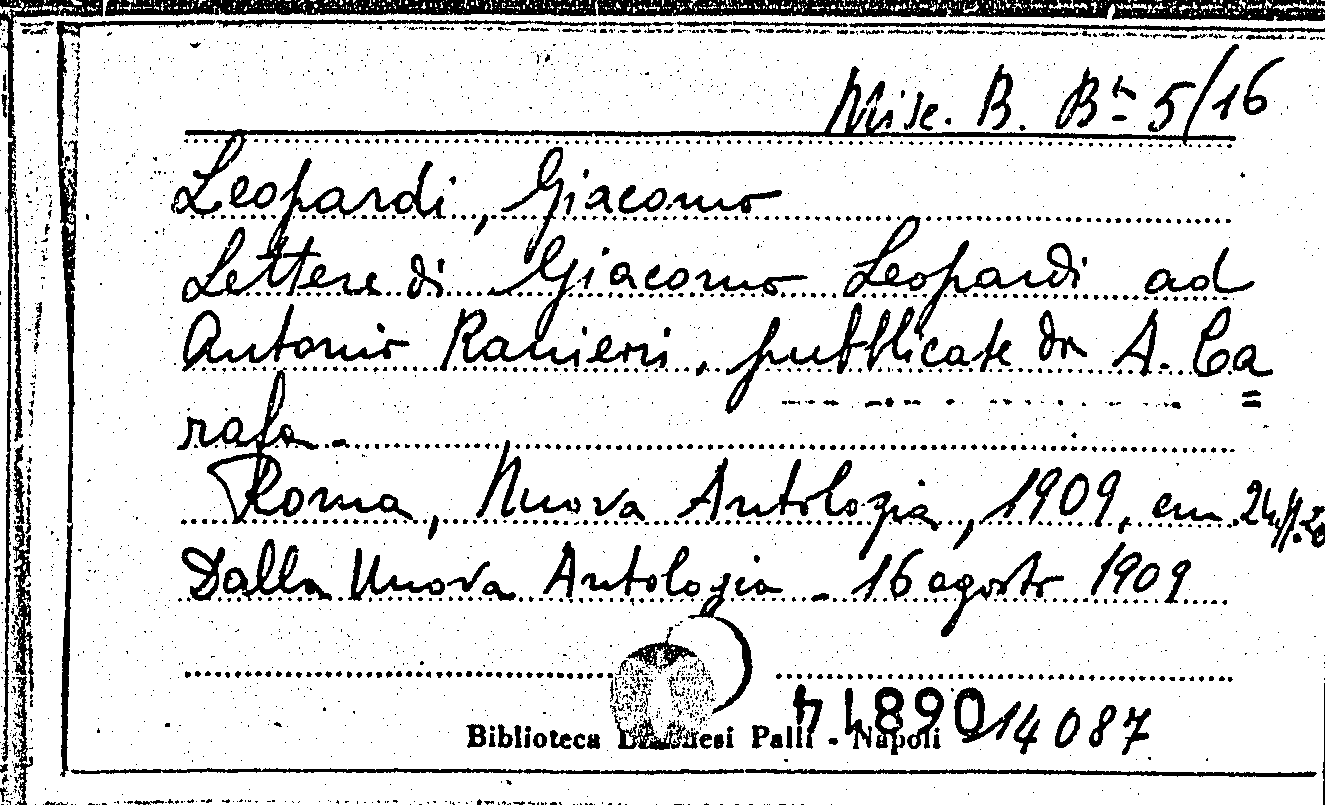 Misc. B. Bª 5/16
Leopardi, Giacomo
Lettere di Giacomo Leopardi ad
Antonio Ranieri, pubblicate da A. Ca=
rafa.
Roma, Nuova Antologia, 1909, cm 24, p. 20
Dalla Nuova Antologia - 16 agosto 1909
068174 14087
Biblioteca Palli - Napoli